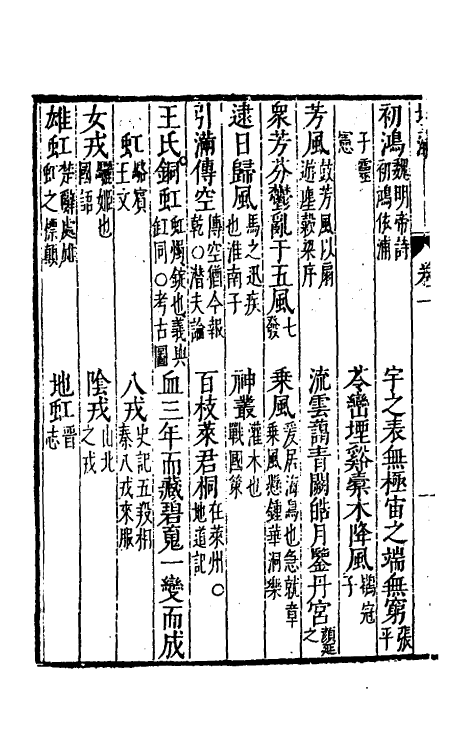 卷一
初鴻魏明帝詩初鴻依浦 宇之表無極宙之端無窮張平
子靈憲 苓巒堙谿橐木降風鶡冠子
芳風鼓芳風以扇遊塵穀梁序 流雲藹青闕皓月鑒丹宮顏延之
衆芳芬鬱亂于五風七發 乘風爰居海鳥也急就章乘風懸鍾華洞樂
逮日歸風馬之迅疾也淮南子 神叢灌木也戰國策
引滿傳空傳空猶今報乾○潛夫論 百枝萊君桐在萊州○地道記
王氏銅虹虹燭錠也義與釭同○考古圖 血三年而藏碧䰟一變而成
虹駱賓王文 八戎史記五羖相秦八戎來服
女戎驪姬也國語 陰戎山北之戎
雄虹楚辭處雌虹之標顛 地虹晋志